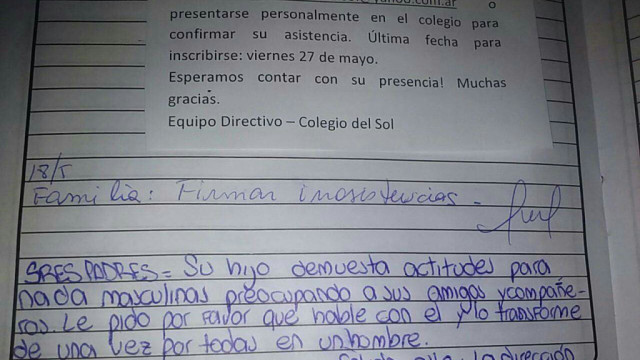 yahoo.com.ar o
presentarse personalmente en el colegio para
confirmar su asistencia. Última fecha para
inscribirse: viernes 27 de mayo.
Esperamos contar con su presencia! Muchas
gracias.
Equipo Directivo – Colegio del Sol
18/5
Familia: Firmar inasistencias -
SRES PADRES = Su hijo demuesta actitudes para
nada masculinas preocupando a sus amigos y compañe-
ros. Le pido por favor que hable con el y lo transforme
de una vez por todas en un hombre.
la dirección